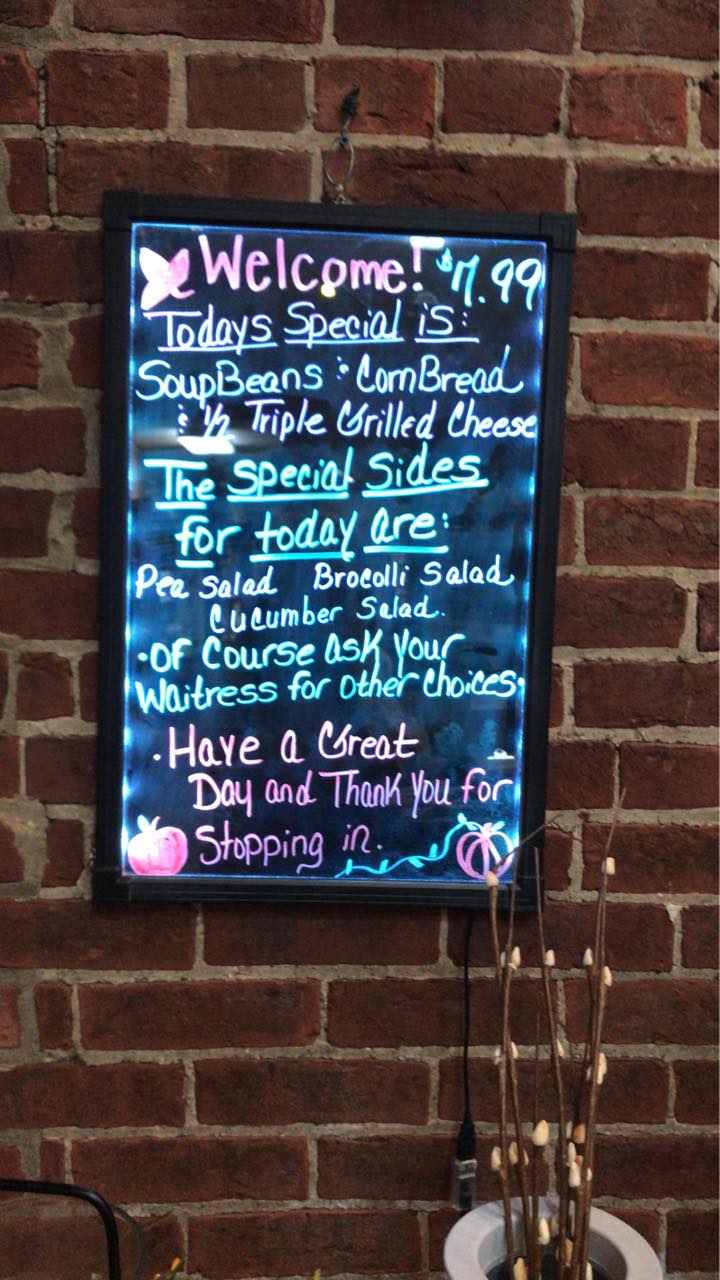 Welcome! $7.99
Todays Special is:
SoupBeans & CornBread
& 1/2 Triple Grilled Cheese
The Special Sides
for today are:
Pea Salad Brocolli Salad
Cucumber Salad.
·Of Course ask your
Waitress for other choices·
·Have a Great
Day and Thank You for
Stopping in.